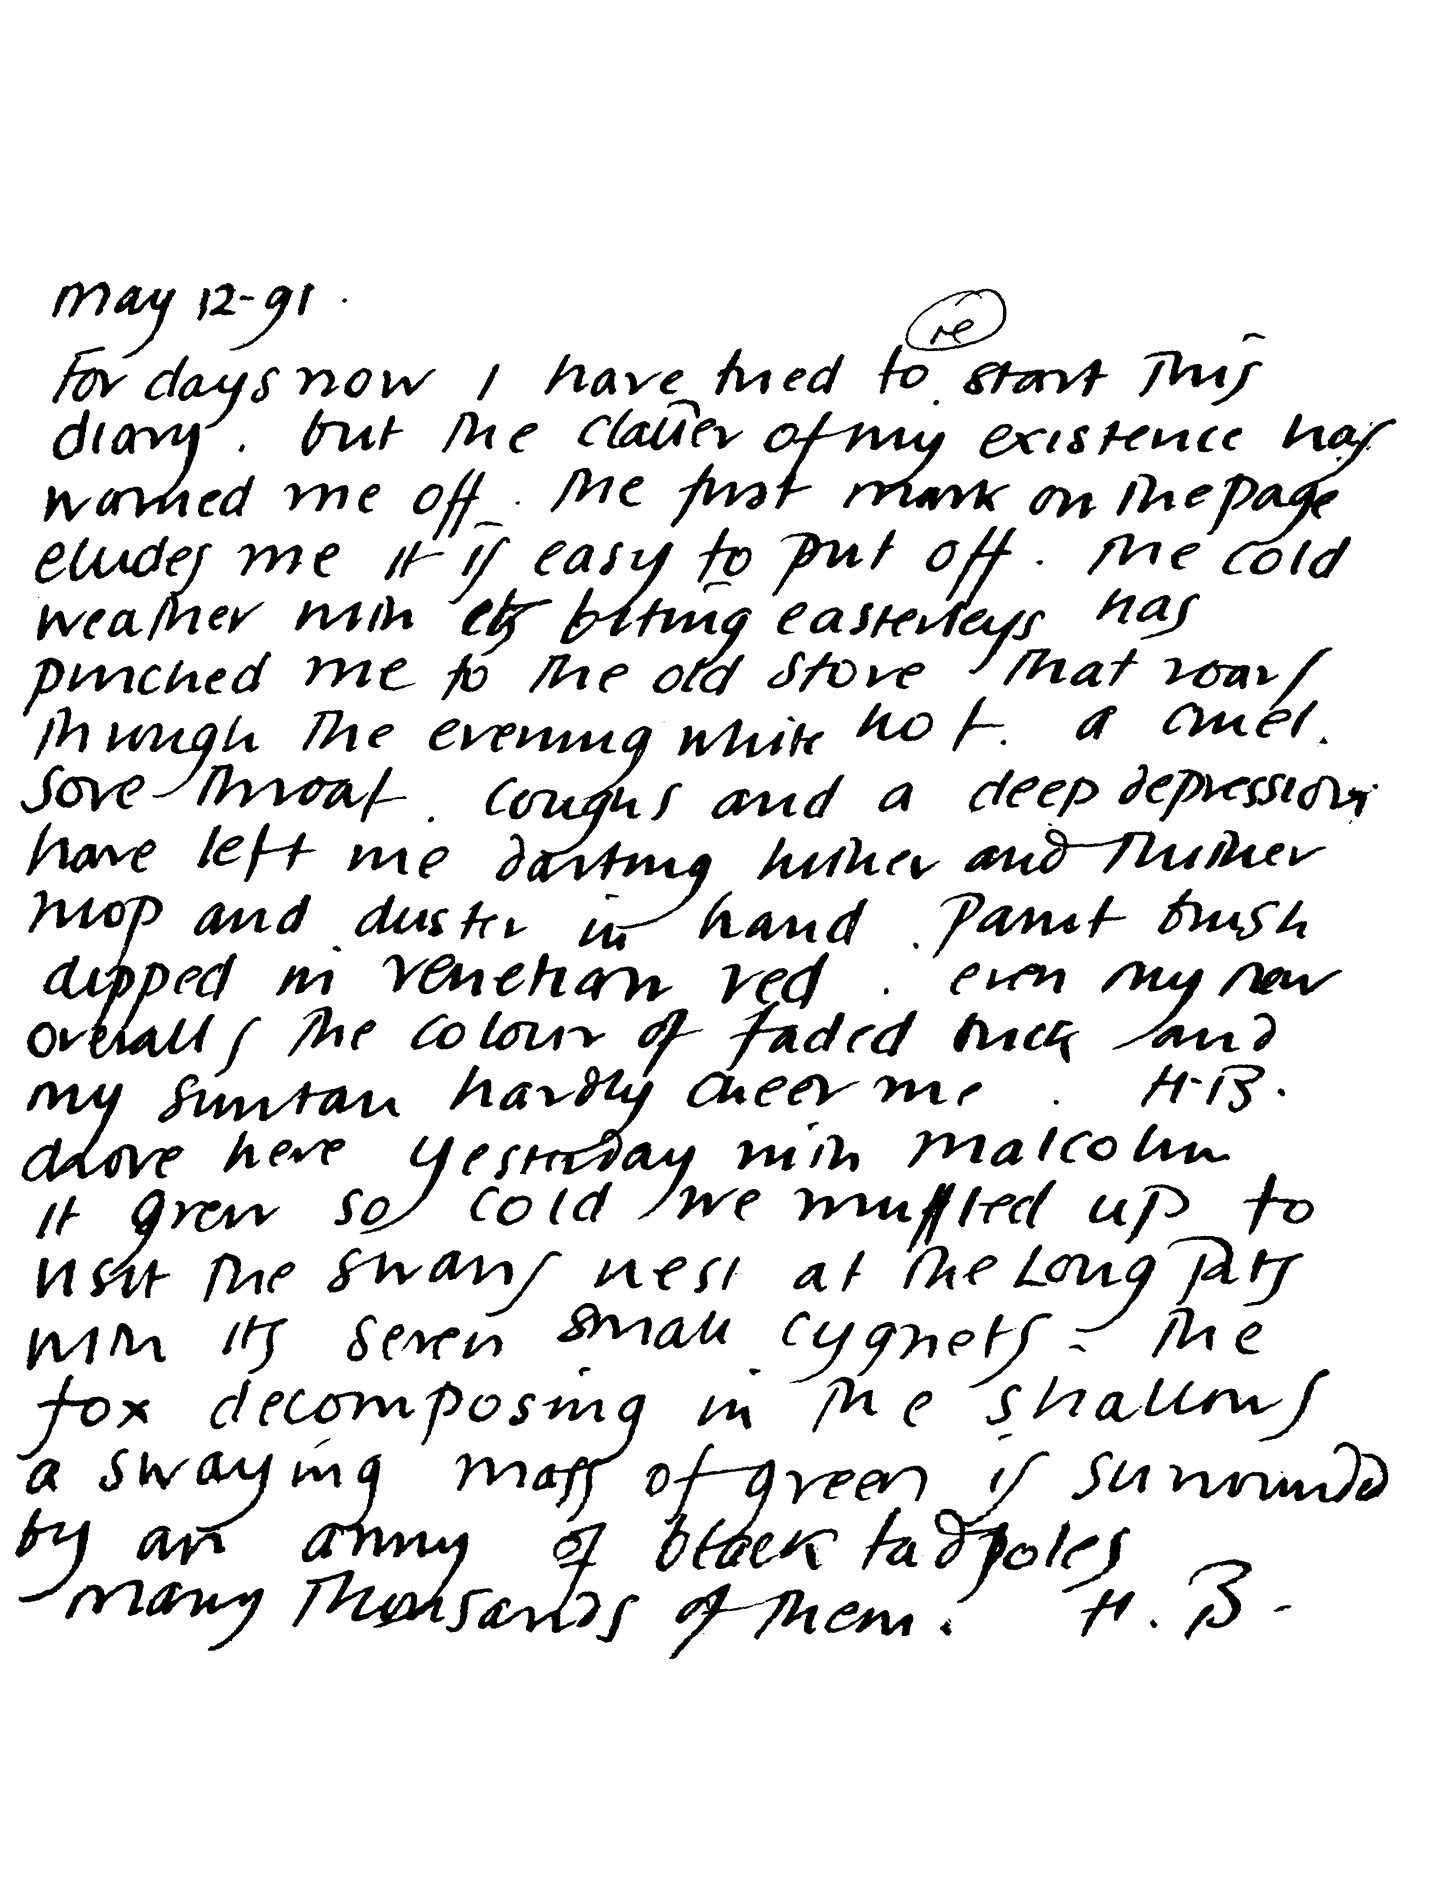 May 12-91.
For days now I have tried to (re) start this
diary. but the clatter of my existence has
warned me off. The first mark on the page
eludes me it is easy to put off. The cold
weather with its biting easterleys has
pinched me to the old stove that roars
through the evening white hot. a cruel.
Sore throat. Coughs and a deep depression
have left me darting hither and thither
mop and duster in hand. Paint brush
dipped in Venetian red. even my new
overalls the colour of faded brick and
my suntan hardly cheer me. H.B.
drove here yesterday with Malcolm
it grew so cold we muffled up to
visit the swans nest at the Long Pits
with its seven small cygnets - The
fox decomposing in the shallows
a swaying mass of green is surrounded
by an army of black tadpoles
many thousands of them. H.B-